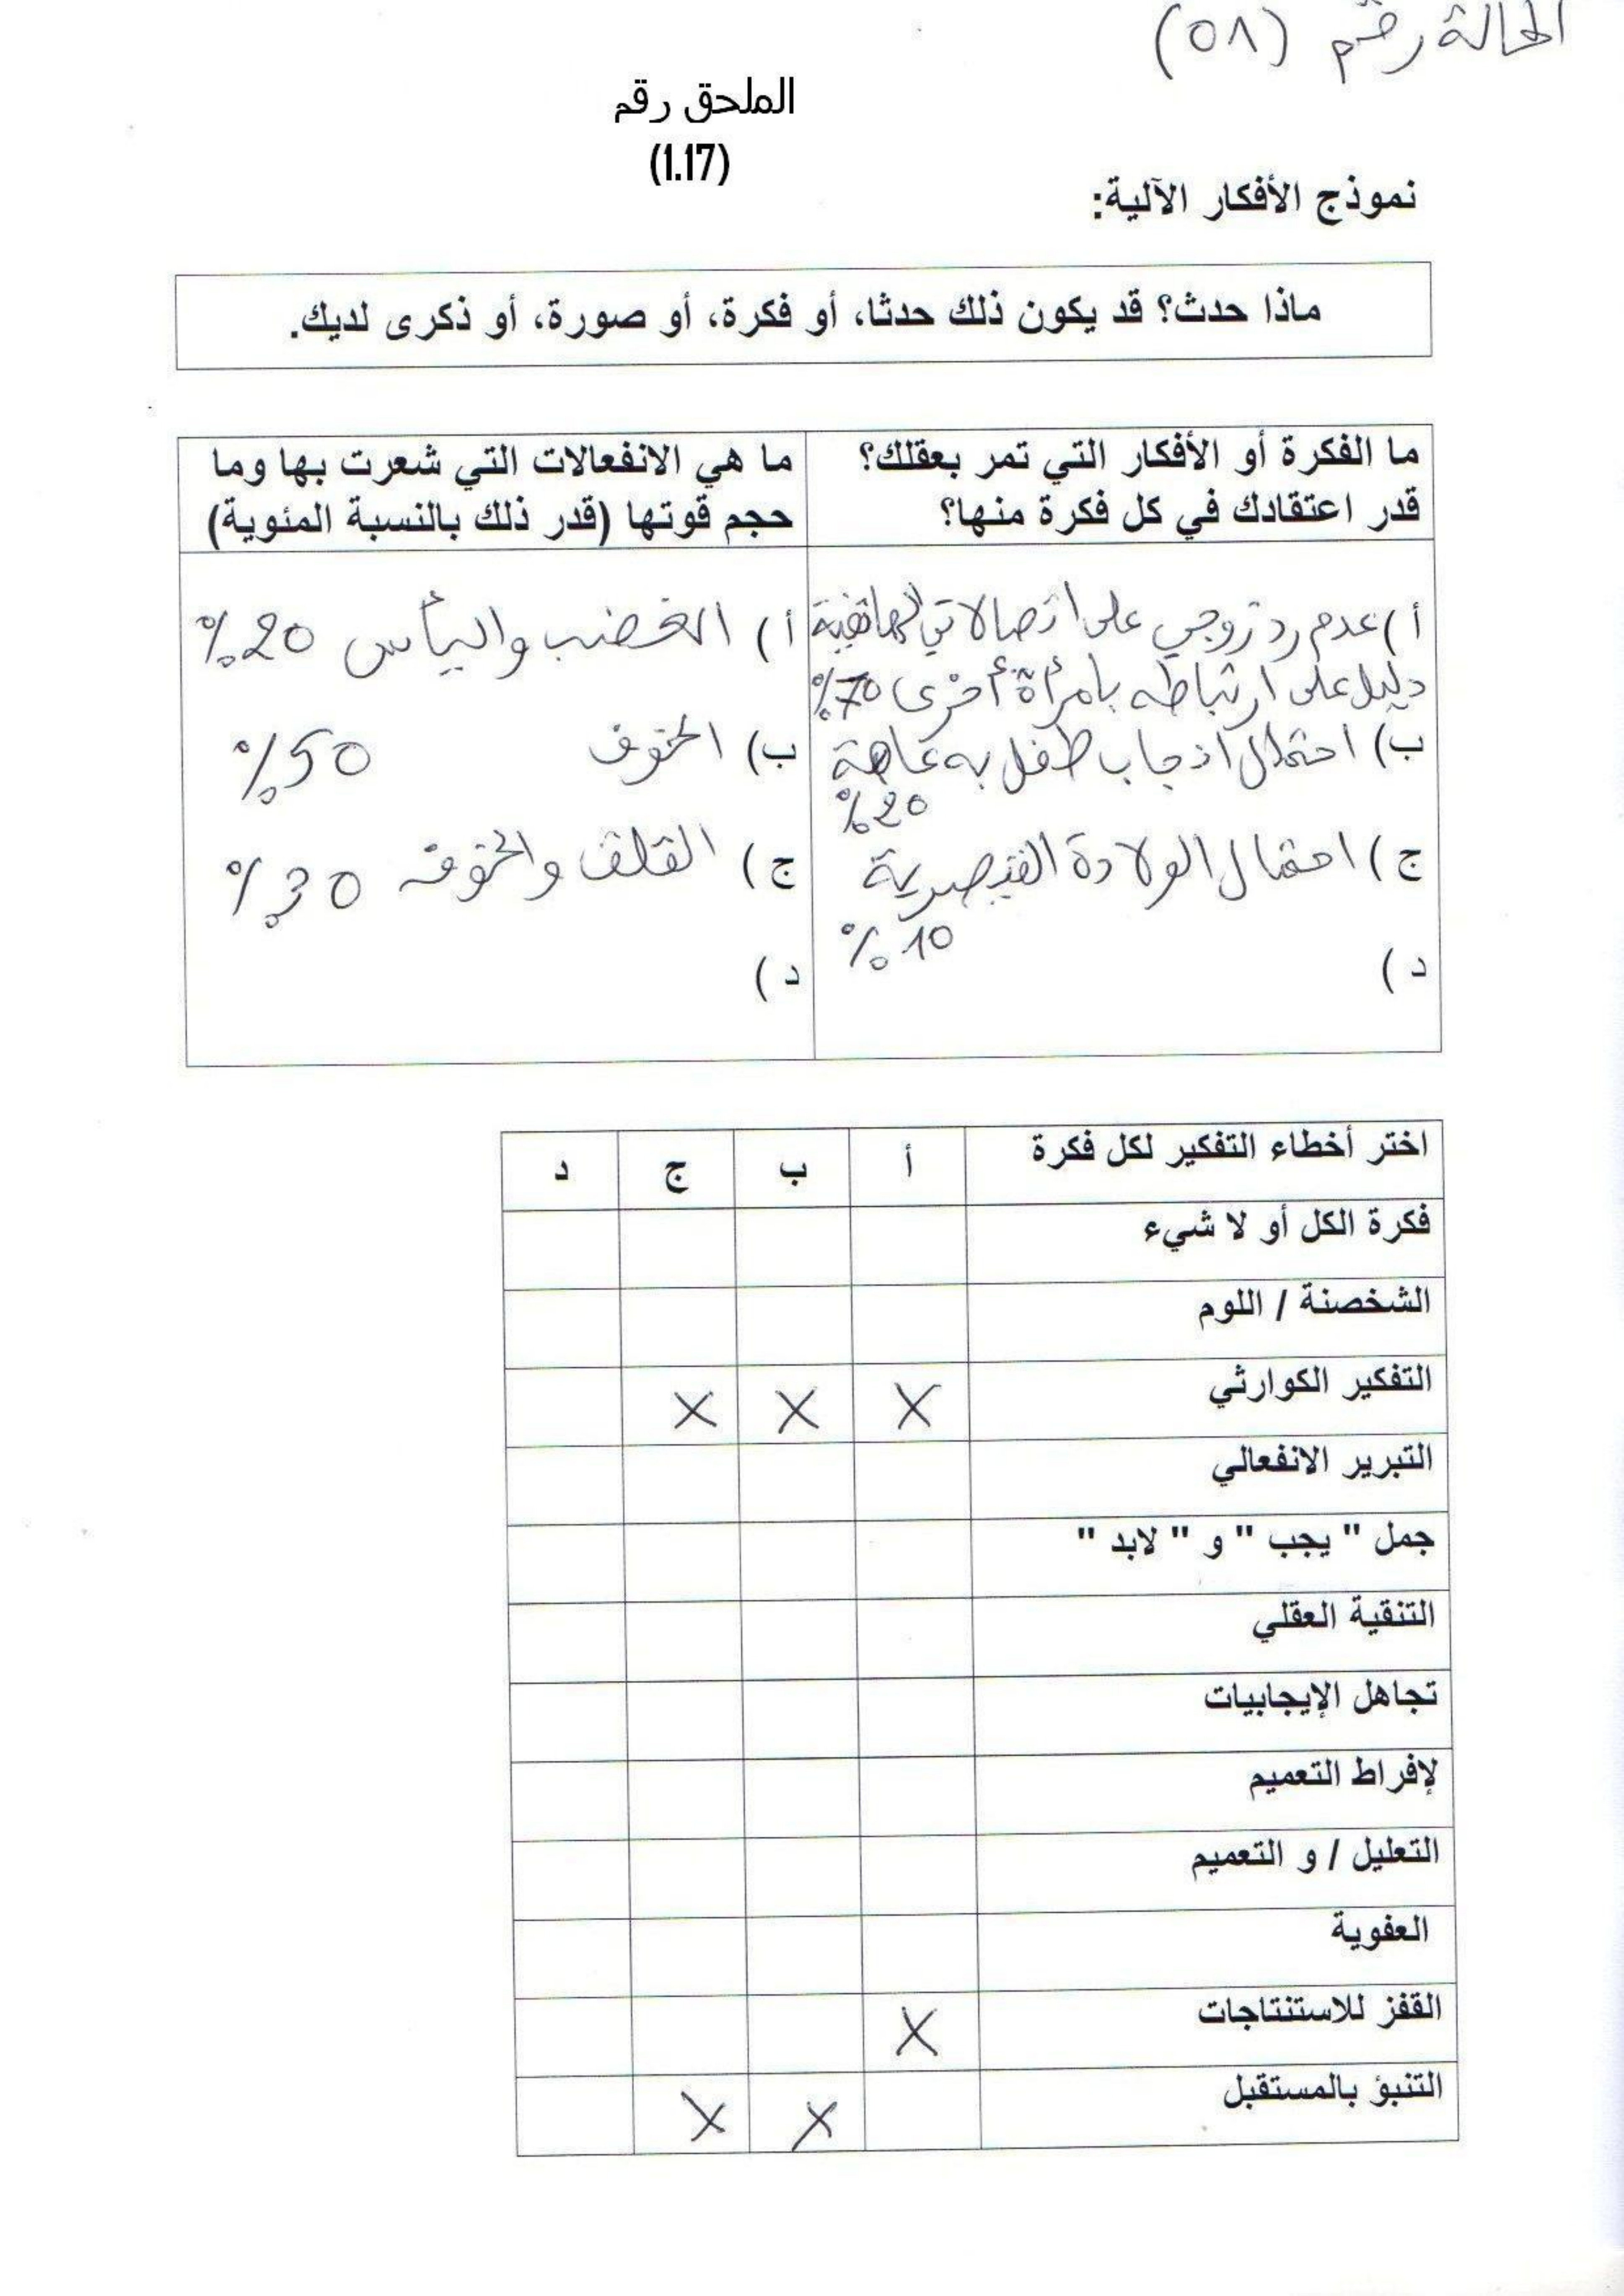 الحالة رقم (٥٨)
الملحق رقم
(1.17)
نموذج الأفكار الآلية:
ماذا حدث؟ قد يكون ذلك حدثا، أو فكرة، أو صورة، أو ذكرى لديك.
ما الفكرة أو الأفكار التي تمر بعقلك؟
قدر اعتقادك في كل فكرة منها؟
ما هي الانفعالات التي شعرت بها وما
حجم قوتها (قدر ذلك بالنسبة المئوية)
أ) عدم رد زوجي على اتصالاتي الهاتفية
دليل على ارتباطه بامرأة أخرى 70%
ب) احتمال انجاب طفل به عاهة
20%
ج) احتمال الولادة القيصرية
10%
د)
أ) الغضب واليأس 20%
ب) الخوف 50%
ج) القلق والخوف 30%
د)
اختر أخطاء التفكير لكل فكرة أ ب ج د
فكرة الكل أو لا شيء
الشخصنة / اللوم
التفكير الكوارثي X X X
التبرير الانفعالي
جمل " يجب " و " لابد "
التنقية العقلي
تجاهل الإيجابيات
لإفراط التعميم
التعليل / و التعميم
العفوية
القفز للاستنتاجات X
التنبؤ بالمستقبل X X